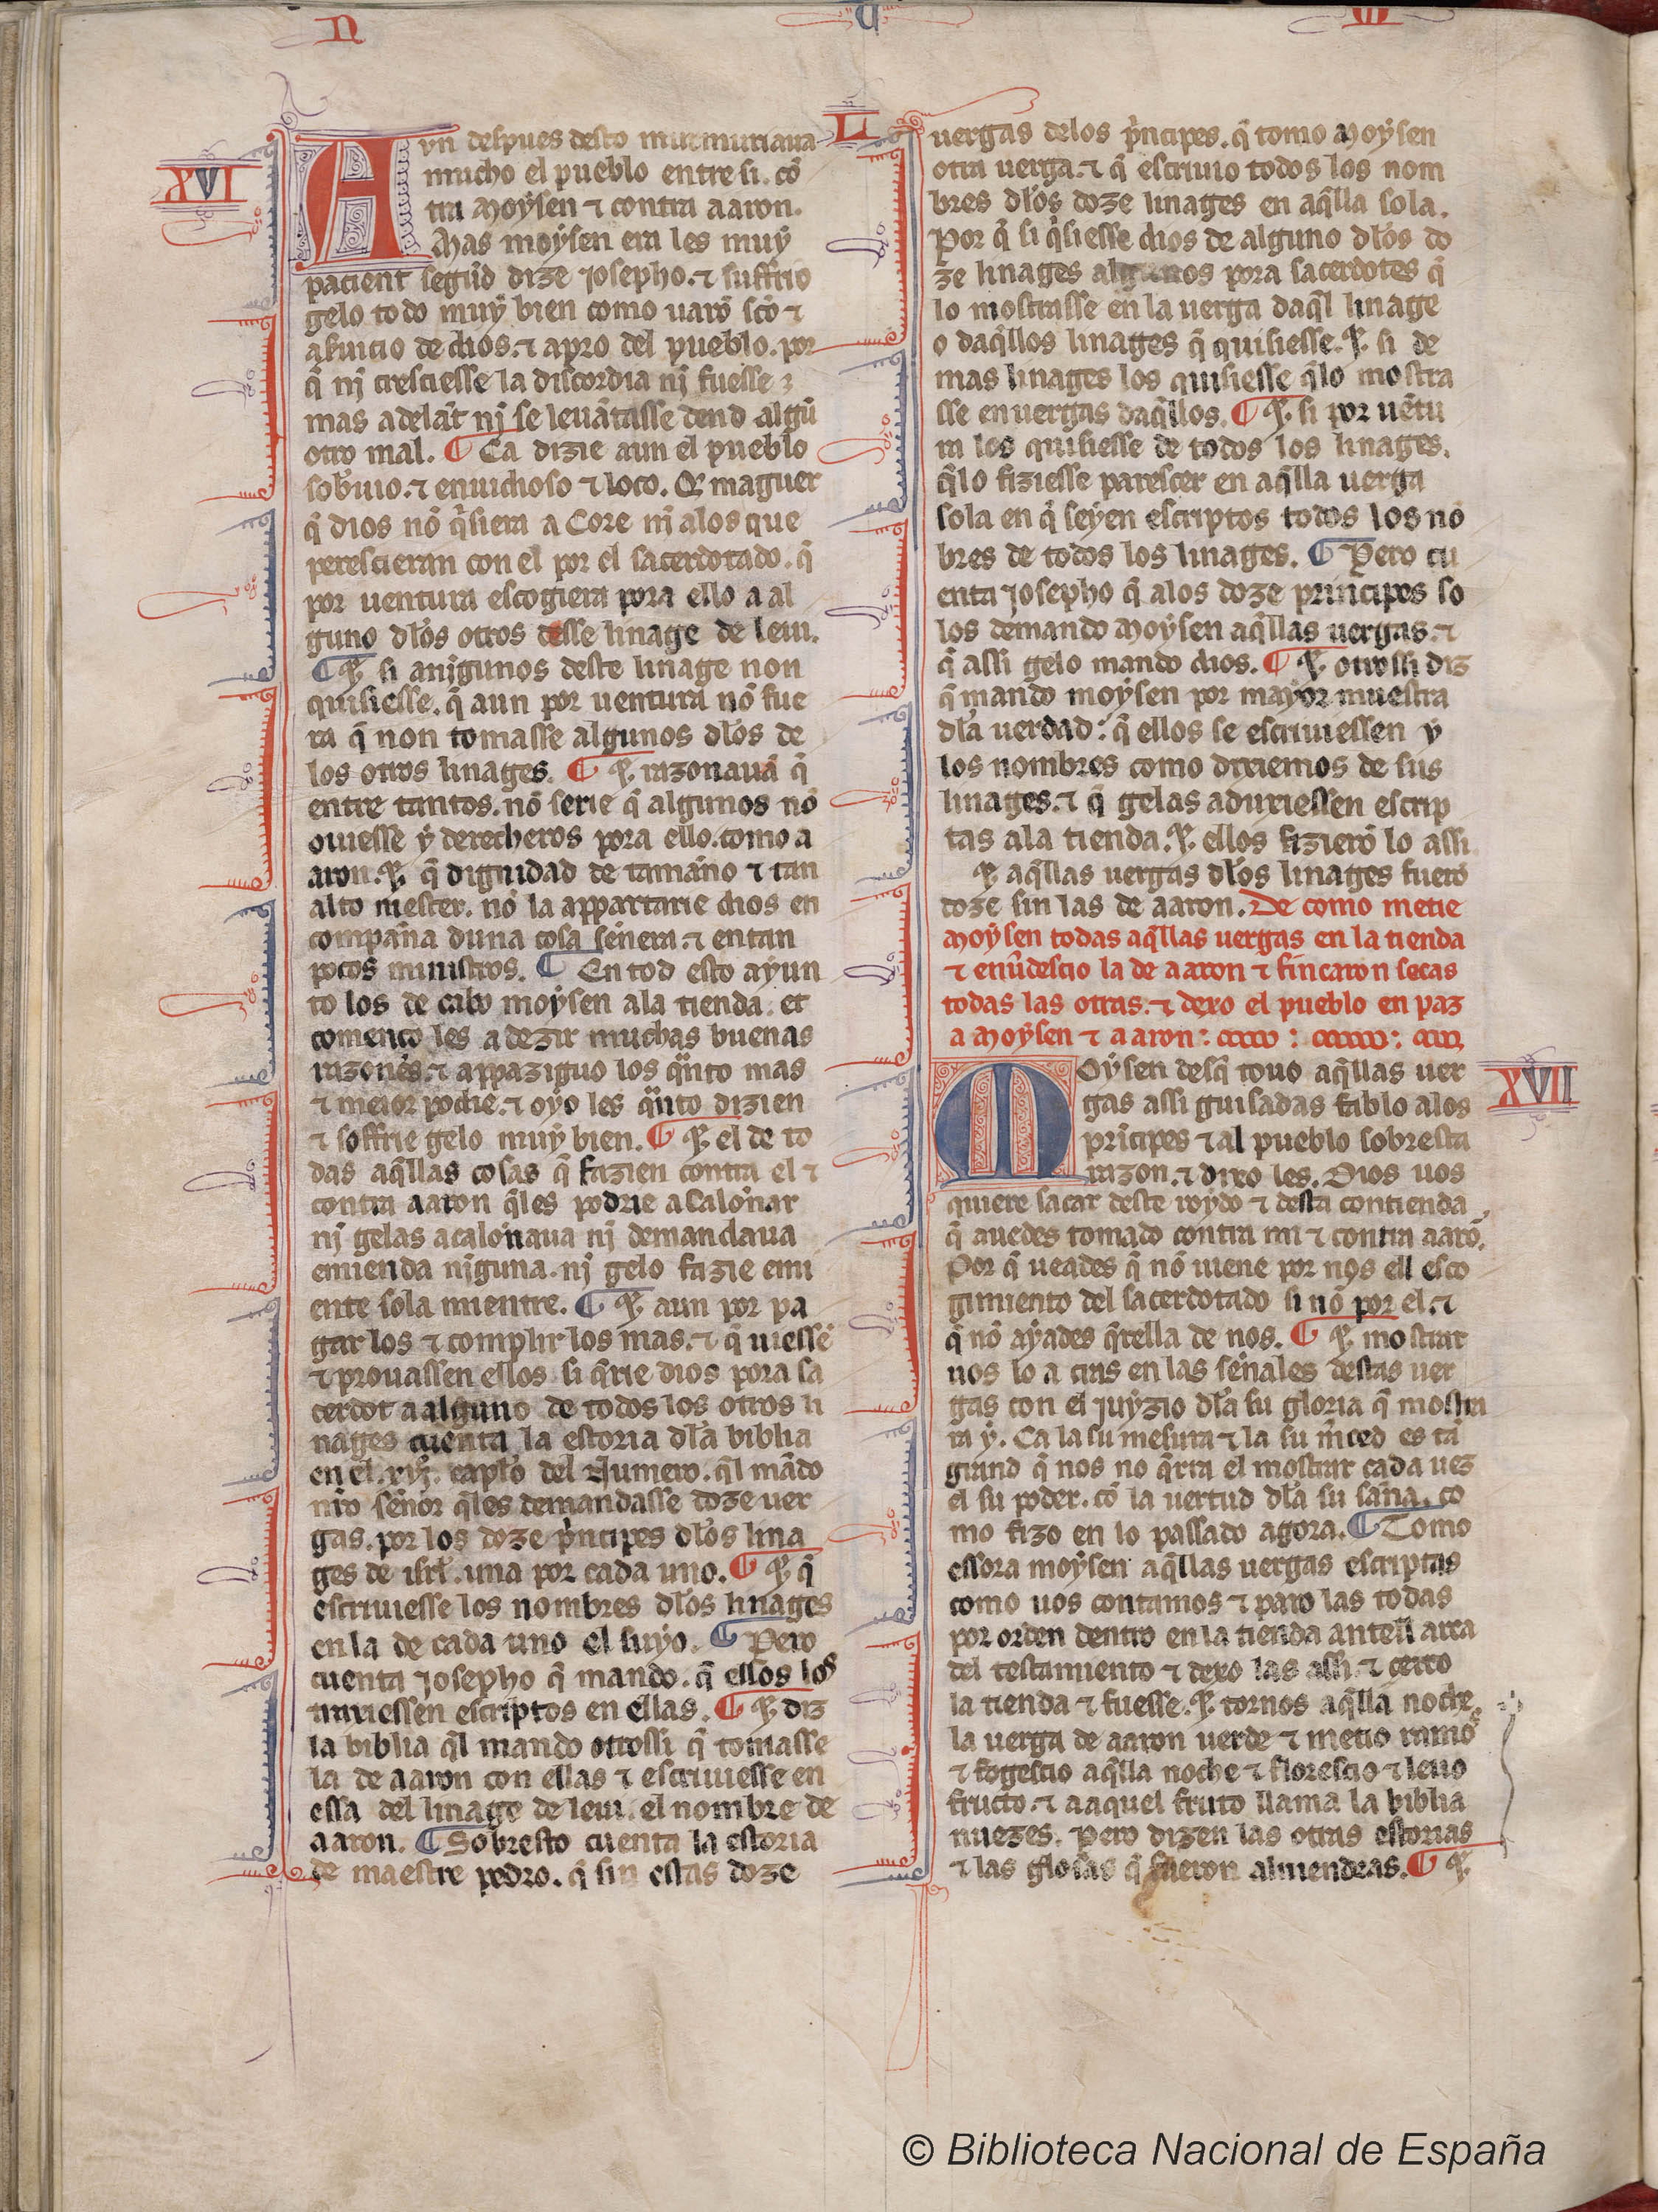 N U M
XVI
L
Aun despues desto murmuriaua
mucho el pueblo entre si. cõ
tra moẏsen ⁊ contra aaron.
Mas moẏsen era les muẏ
pacient segũd dize Josepho. ⁊ suffrio
gelo todo muẏ bien como uarõ sc̃o ⁊
a seruicio de dios. ⁊ a pro del pueblo. por
q̃ nj cresciesse la discordia nj fuesse
mas adelãt nj se leuãtasse dend algũ
otro mal. ¶ Ca dizie aun el pueblo
sob̃uio. ⁊ enuidioso ⁊ loco. Q maguer
q̃ dios nõ q̃siera a Core nj alos que
perescieran con el por el sacerdotado. q̃
por uentura escogiera pora ello a al
guno dl̃os otros desse linage de leui.
¶ ⁊ si anjgunos deste linage non
quisiesse. q̃ aun por uentura nõ fue
ra q̃ non tomasse algunos dl̃os de
los otros linages. ¶ ⁊ razonauã q̃
entre tantos. nõ serie q̃ algunos nõ
ouiesse ẏ derecheros pora ello. como a
aron. ⁊ q̃ dignidad de tamãno ⁊ tan
alto mester. nõ la appartarie dios en
compãna duna cosa sẽnera. ⁊ en tan
pocos ministros. ¶ En tod esto aẏun
to los de cabo moẏsen ala tienda. et
començo les a dezir muchas buenas
razones. ⁊ appaziguo los q̃nto mas
⁊ meior podie. ⁊ oyo les q̃nto dizien
⁊ soffrie gelo muẏ bien. ¶ ⁊ el de to
das aq̃llas cosas q̃ fazien contra el ⁊
contra aaron q̃les podrie acalõnar
nj gelas acalõnaua nj demandaua
emienda njguna. nj gelo fazie emi
ente sola mientre. ¶ ⁊ aun por pa
gar los ⁊ complir los mas. ⁊ q̃ uiessẽ
⁊ prouassen ellos si q̃rie dios pora sa
cerdot a alguno de todos los otros li
nages cuenta la estoria dl̃a biblia
en el .xvij. capl̃o del Numero. q̃l mãdo
nr̃o sẽnor q̃les demandasse doze uer
gas. por los doze p̃ncipes dl̃os lina
ges de isrl̃. una por cada uno. ¶ ⁊ q̃
escriuiesse los nombres dl̃os linages
en la de cada uno el suyo. ¶ Pero
cuenta Josepho q̃ mando. q̃ ellos los
troxiessen escriptos en ellas. ¶ ⁊ diz
la biblia q̃l mando otrossi q̃ tomasse
la de aaron con ellas ⁊ escriuiesse en
essa del linage de leui. el nombre de
aaron. ¶ Sobresto cuenta la estoria
de maestre pedro. q̃ sin estas doze
uergas delos p̃ncipes. q̃ tomo moẏsen
otra uerga. ⁊ q̃ escriuio todos los nom
bres dl̃os doze linages en aq̃lla sola.
Por q̃ si q̃siesse dios de alguno dl̃os do
ze linages algunos pora sacerdotes q̃
lo mostrasse en la uerga daq̃l linage
o daq̃llos linages q̃ quisiesse. ⁊ si de
mas linages los quisiesse q̃lo mostra
sse en uergas daq̃llos. ¶ ⁊ si por uẽtu
ra los quisiesse de todos los linages.
q̃lo fiziesse parescer en aq̃lla uerga
sola en q̃ seẏen escriptos todos los nõ
bres de todos los linages. ¶ Pero cu
enta Josepho q̃ alos doze principes so
los demando moẏsen aq̃llas uergas. ⁊
q̃ assi gelo mando dios. ¶ ⁊ otrossi diz
q̃ mando moẏsen por mayor muestra
dl̃a uerdad: q̃ ellos se escriuiessen ẏ
los nombres como dixiemos de sus
linages. ⁊ q̃ gelas aduxiessen escrip
tas ala tienda. ⁊ ellos fizierõ lo assi.
⁊ aq̃llas uergas dl̃os linages fuerõ
doze sin las de aaron. De como metie
moẏsen todas aq̃llas uergas en la tienda
⁊ enũdescio la de aaron ⁊ fincaron secas
todas las otras. ⁊ dexo el pueblo en paz
a moẏsen ⁊ a aaron:
XVII
Moẏsen desq̃ touo aq̃llas uer
gas assi guisadas fablo alos
prĩcipes ⁊ al pueblo sobresta
razon. ⁊ dixo les. Dios uos
quiere sacar deste roẏdo ⁊ desta contienda
q̃ auedes tomado contra mi ⁊ contra aarõ.
Por q̃ ueades q̃ nõ uiene por nos ell esco
gimiento del sacerdotado si nõ por el. ⁊
q̃ nõ aẏades q̃rella de nos. ¶ ⁊ mostrar
uos lo a cras en las sẽnales destas uer
gas con el juẏzio dl̃a su gloria q̃ mostra
ra ẏ. Ca la su mesura ⁊ la su m̃ced es tã
grand q̃ nos no q̃rra el mostrar cada uez
el su poder. cõ la uertud dl̃a su sãna. co
mo fizo en lo passado agora. ¶ Tomo
essora moẏsen aq̃llas uergas escriptas
como uos contamos ⁊ paro las todas
por orden dentro en la tienda antell arca
del testamiento ⁊ dexo las assi. ⁊ cerro
la tienda ⁊ fuesse. ⁊ tornos aq̃lla noche
la uerga de aaron uerde ⁊ metio ramos
⁊ fogescio aq̃lla noche ⁊ florescio ⁊ leuo
fructo. ⁊ a aquel fruto llama la biblia
nuezes. Pero dizen las otras estorias
⁊ las glosas q̃ fueron almendras. ¶ ⁊
© Biblioteca Nacional de España